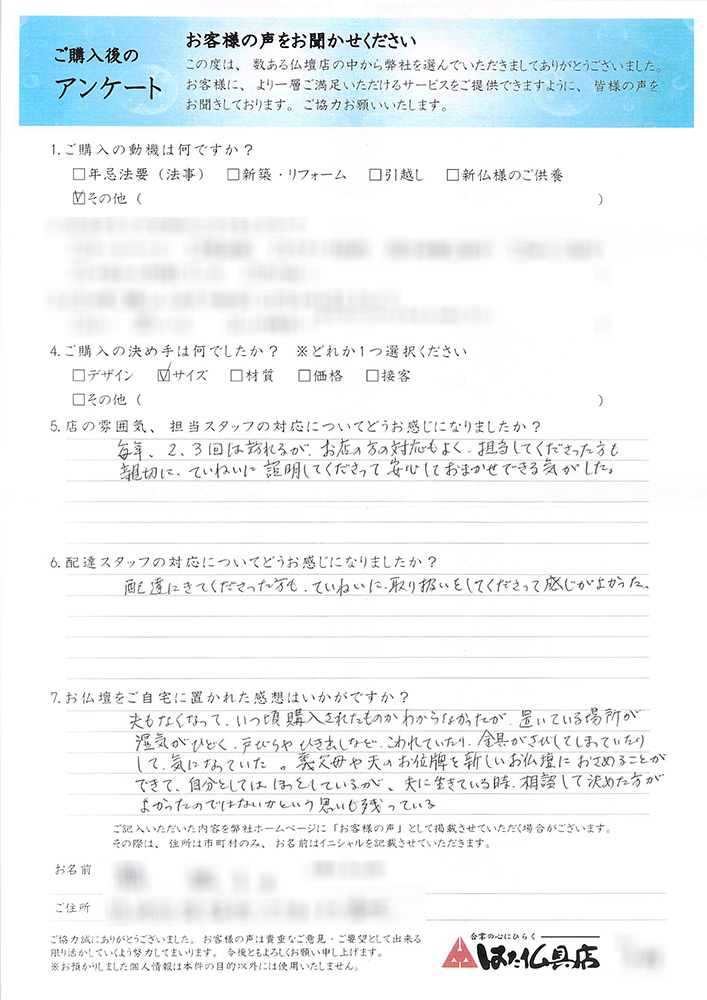 ご購入後の
アンケート
お客様の声をお聞かせください
この度は、数ある仏壇店の中から弊社を選んでいただきましてありがとうございました。
お客様に、より一層ご満足いただけるサービスをご提供できますように、皆様の声を
お聞きしております。ご協力お願いいたします。
1.ご購入の動機は何ですか？
□年忌法要（法事） □新築・リフォーム □引越し □新仏様のご供養
☑その他（ ）
4.ご購入の決め手は何でしたか？ ※どれか1つ選択ください
□デザイン ☑サイズ □材質 □価格 □接客
□その他（ ）
5.店の雰囲気、担当スタッフの対応についてどうお感じになりましたか？
毎年、2、3回は訪れるが、お店の方の対応もよく、担当してくださった方も
親切に、ていねいに説明してくださって安心しておまかせできる気がした。
6.配達スタッフの対応についてどうお感じになりましたか？
配達にきてくださった方も、ていねいに、取り扱いをしてくださって感じがよかった。
7.お仏壇をご自宅に置かれた感想はいかがですか？
夫もなくなって、いつ頃購入されたものかわからなかったが、置いている場所が
湿気がひどく、戸びらやひき出しなど、こわれていたり、金具がさびてしまっていたり
して、気になっていた。義父母や夫のお位牌を新しいお仏壇におさめることが
できて、自分としてはほっとしているが、夫に生きている時、相談して決めた方が
よかったのではないかという思いも残っている
ご記入いただいた内容を弊社ホームページに「お客様の声」として掲載させていただく場合がございます。
その際は、住所は市町村のみ、お名前はイニシャルを記載させていただきます。
お名前
ご住所
ご協力誠にありがとうございました。お客様の声は貴重なご意見・ご要望として出来る
限り活かしていくよう努力してまいります。今後ともよろしくお願い申し上げます。
※お預かりしました個人情報は本件の目的以外には使用いたしません。
合掌の心にひらく
はた仏具店